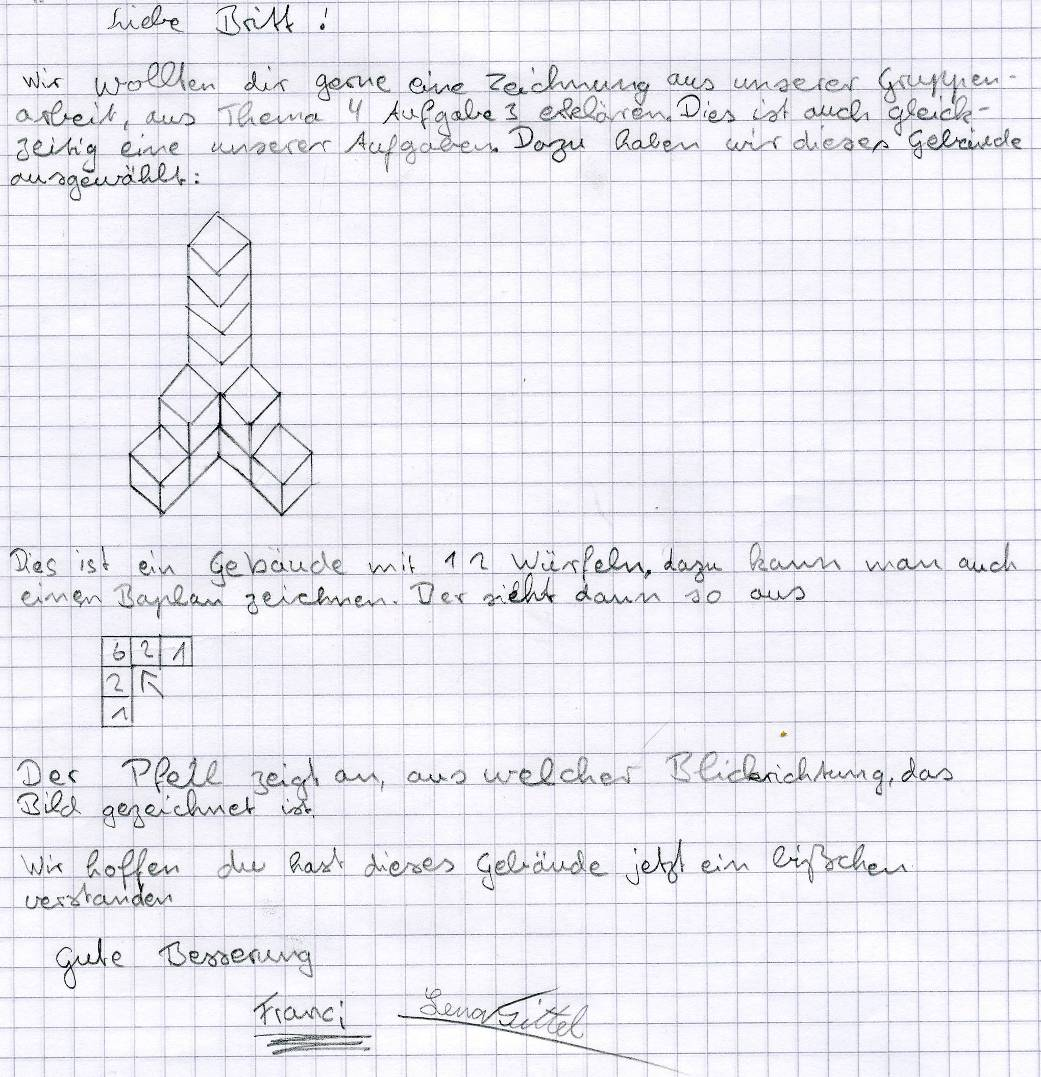 Liebe Britt !
Wir wollten dir gerne eine Zeichnung aus unserer Gruppen-
arbeit, aus Thema 4 Aufgabe 3 erklären. Dies ist auch gleich-
zeitig eine unserer Aufgaben. Dazu haben wir dieses Gebäude
ausgewählt:
Dies ist ein Gebäude mit 12 Würfeln, dazu kann man auch
einen Baplan zeichnen. Der sieht dann so aus
6 2 1
2
1
Der Pfeil zeigt an, aus welcher Blickrichtung, das
Bild gezeichnet ist.
Wir hoffen du hast dieses Gebäude jetzt ein bißchen
verstanden
Gute Besserung
Franci Lena Tittel